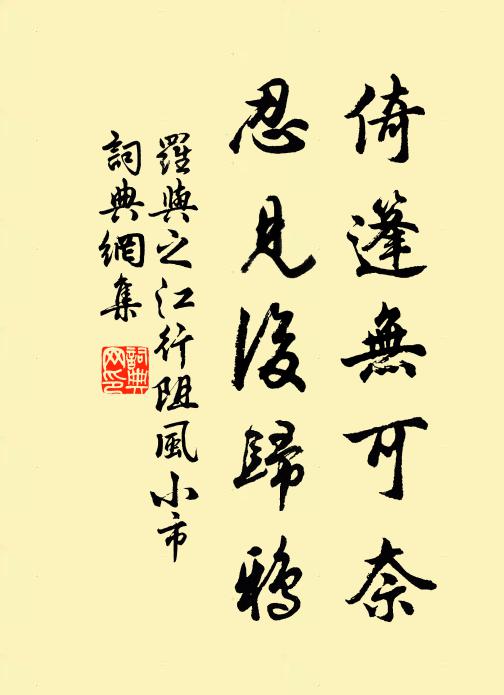 倚篷無可奈
忍見後歸鴉
羅與之江行阻風小市
詞典網集
詞典
网印